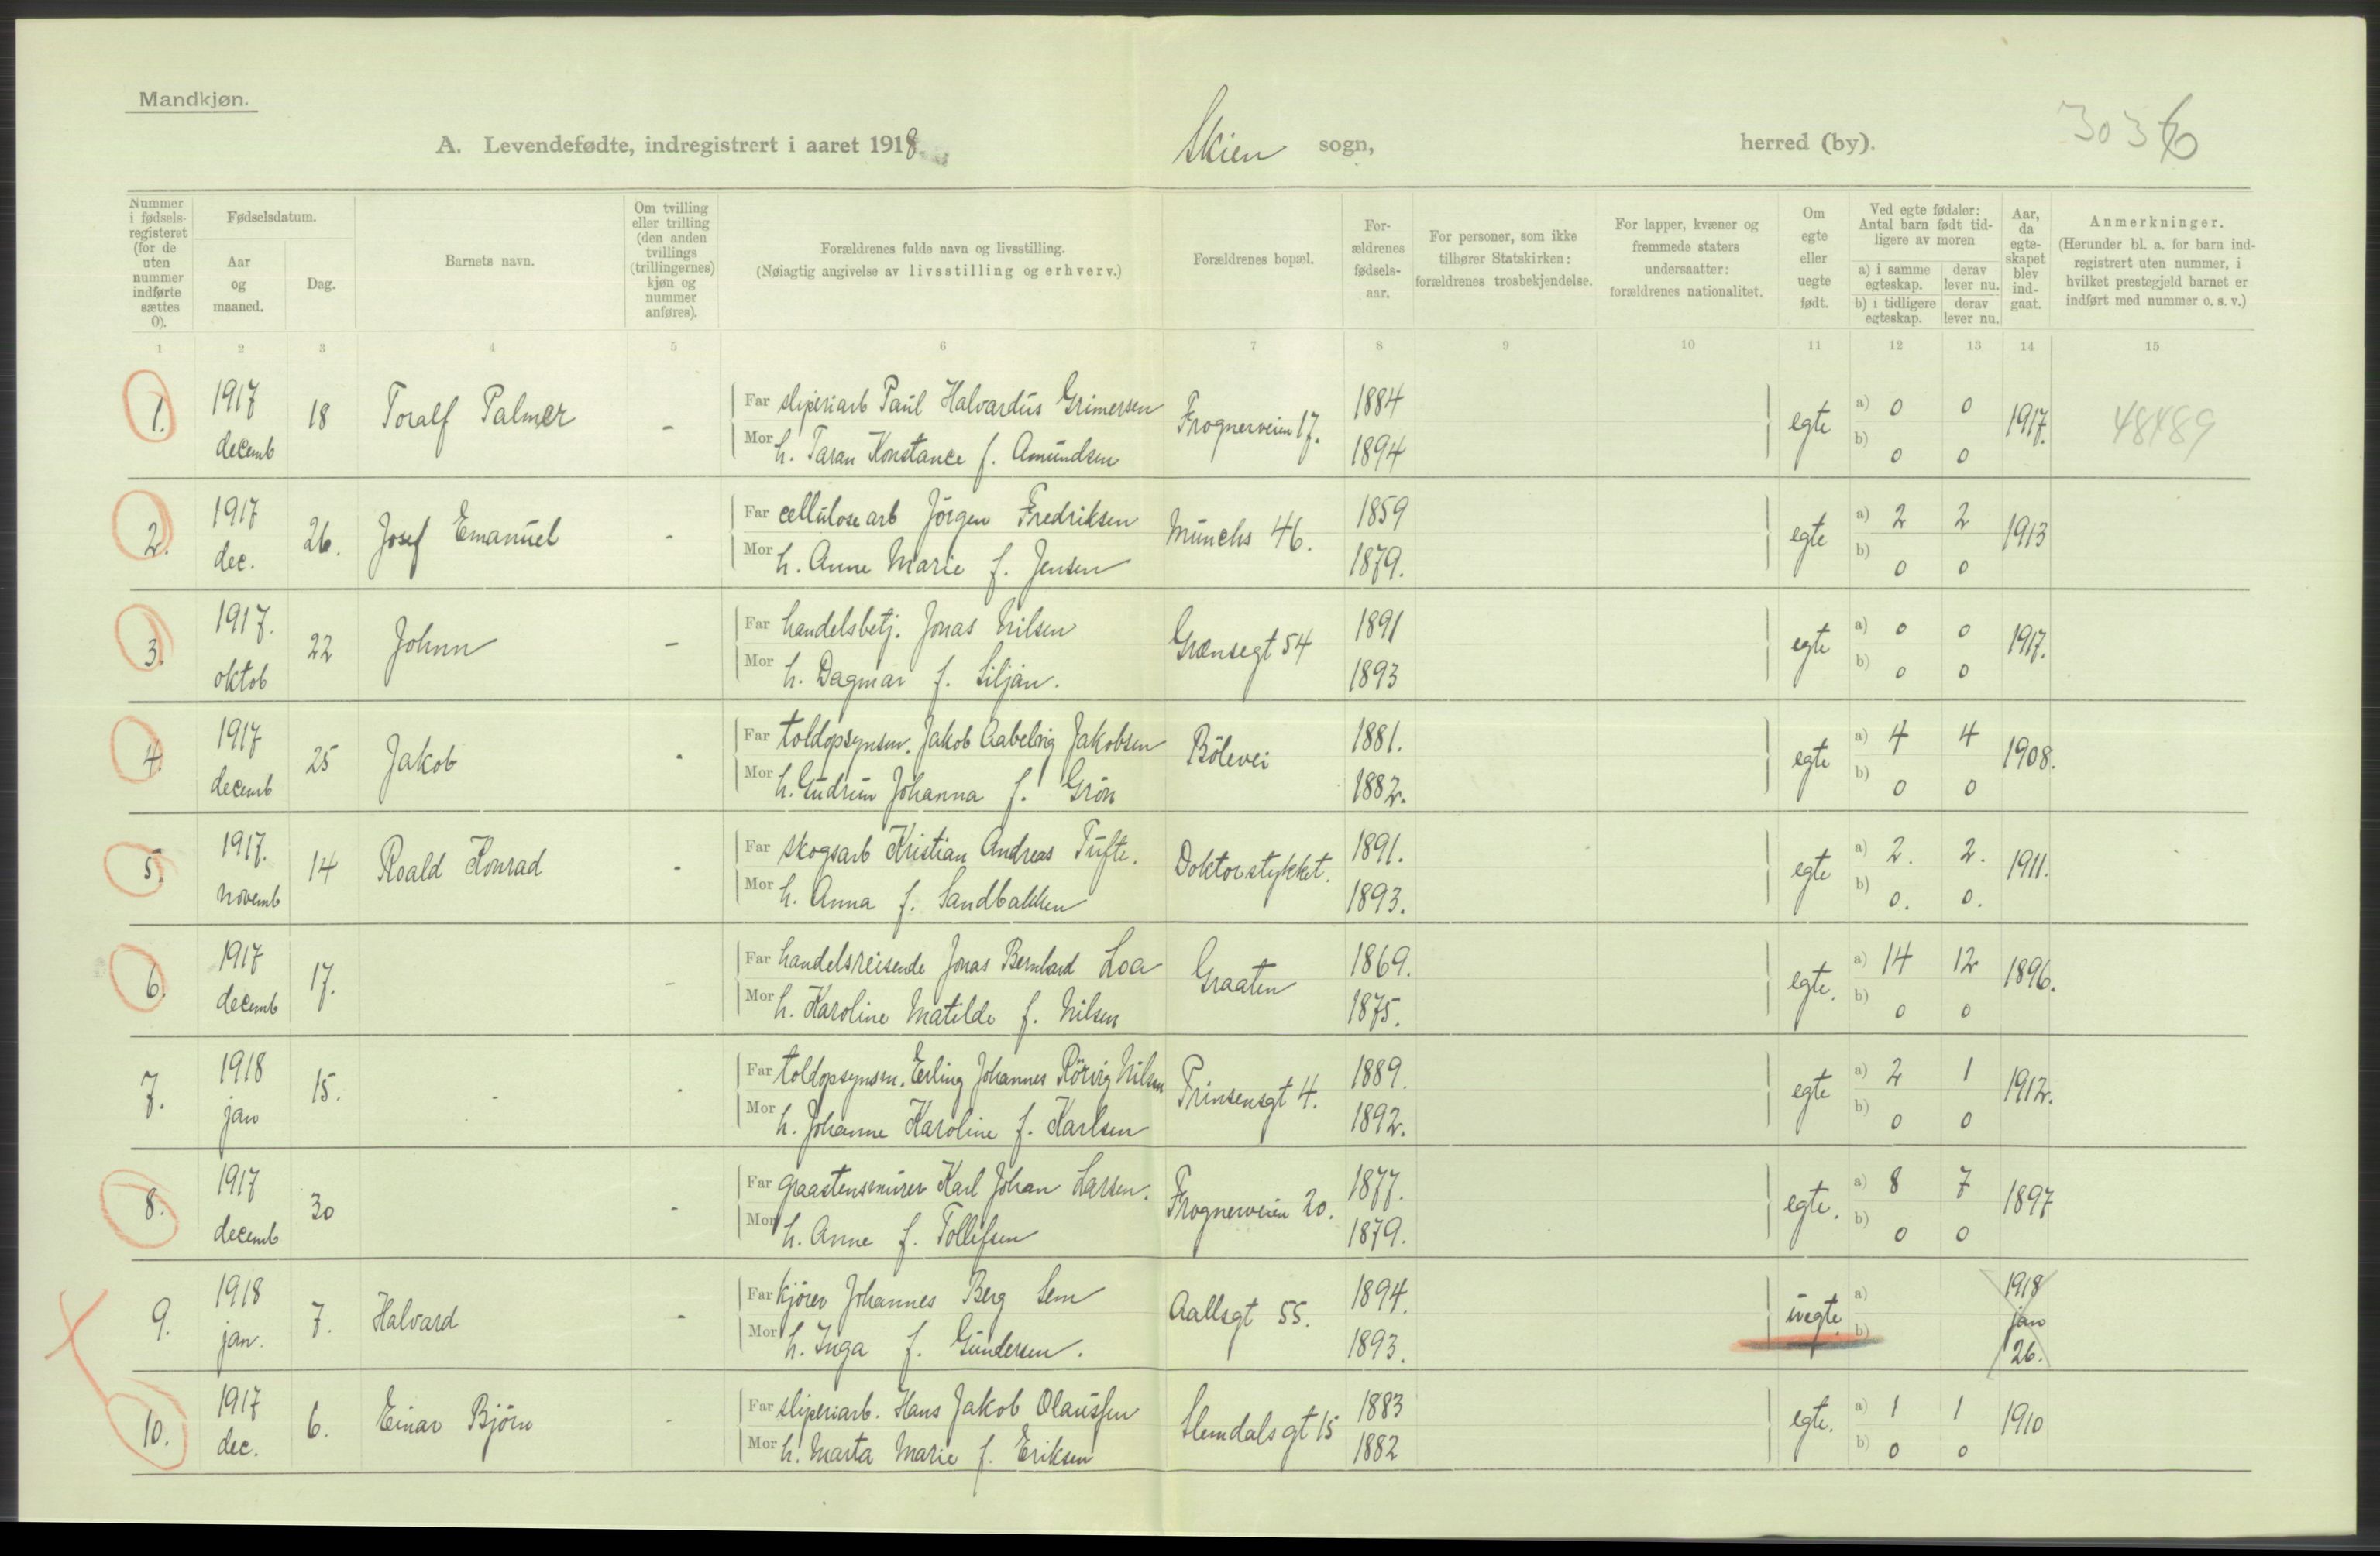 Mandkjøn.
A. Levendefødte, indregistrert i aaret 1918 Skien sogn, herred (by). 3036
Nummer i fødselsregisteret (for de uten nummer indførte sættes 0).
Fødselsdatum.
Aar og maaned.
Dag.
Barnets navn.
Om tvilling eller trilling (den anden tvillings (trillingernes) kjøn og nummer anføres).
Forældrenes fulde navn og livsstilling.
(Nøiagtig angivelse av livsstilling og erhverv.)
Forældrenes bopæl.
Forældrenes fødselsaar.
For personer, som ikke tilhører Statskirken: forældrenes trosbekjendelse.
For lapper, kvæner og fremmede staters undersaatter: forældrenes nationalitet.
Om egte eller uegte født.
Ved egte fødsler: Antal barn født tidligere av moren
a) i samme egteskap. derav lever nu.
b) i tidligere egteskap. derav lever nu.
Aar, da egteskapet blev indgaat.
Anmerkninger.
(Herunder bl. a. for barn indregistrert uten nummer, i hvilket prestegjeld barnet er indført med nummer o. s. v.)
1 2 3 4 5 6 7 8 9 10 11 12 13 14 15
1. 1917 decemb 18 Toralf Palmer - Far sliperiarb Paul Halvardus Grimersen Frognerveien 17. 1884 egte a) 0 0 1917. 48489
Mor h. Taran Konstance f. Amundsen 1894 b) 0 0
2. 1917 dec. 26. Josef Emanuel - Far cellulosearb Jörgen Fredriksen Munchs 46. 1859 egte a) 2 2 1913
Mor h. Anne Marie f. Jensen 1879. b) 0 0
3. 1917. oktob 22 Johnn - Far handelsbetj. Jonas Nilsen Grænsegt 54 1891 egte a) 0 0 1917.
Mor h. Dagmar f. Siljan. 1893 b) 0 0
4. 1917 decemb 25 Jakob - Far toldopsynsm. Jakob Aabelvig Jakobsen Bölevei 1881. egte a) 4 4 1908.
Mor h. Gudrun Johanna f. Grön 1882. b) 0 0
5. 1917. novemb 14 Roald Konrad - Far skogsarb Kristian Andreas Tufte. Doktorstykket. 1891. egte a) 2. 2. 1911.
Mor h. Anna f. Sandbakken 1893. b) 0. 0.
6. 1917 decemb 17. - Far handelsreisende Jonas Bernhard Loa Graaten 1869. egte. a) 14 12 1896.
Mor h. Karoline Matilde f. Nilsen 1875. b) 0 0
7. 1918 jan 15. - - Far toldopsynsm. Erling Johannes Rörvig Nilsen Prinsensgt 4. 1889. egte a) 2 1 1912.
Mor h. Johanne Karoline f. Karlsen 1892. b) 0 0
8. 1917 decemb 30 - Far graastensmurer Karl Johan Larsen. Frognerveien 20. 1877. egte. a) 8 7 1897
Mor h. Anne f. Tollefsen 1879. b) 0 0
9. 1918 jan. 7. Halvard - Far kjörer Johannes Berg Sem Aallsgt 55. 1894. uegte a) 1918 jan 26.
Mor h. Inga f. Gundersen. 1893. b)
10. 1917 dec. 6. Einar Björn - Far sliperiarb. Hans Jakob Olaussen Slemdalsgt 15 1883 egte. a) 1 1 1910
Mor h. Marta Marie f. Eriksen 1882 b) 0 0